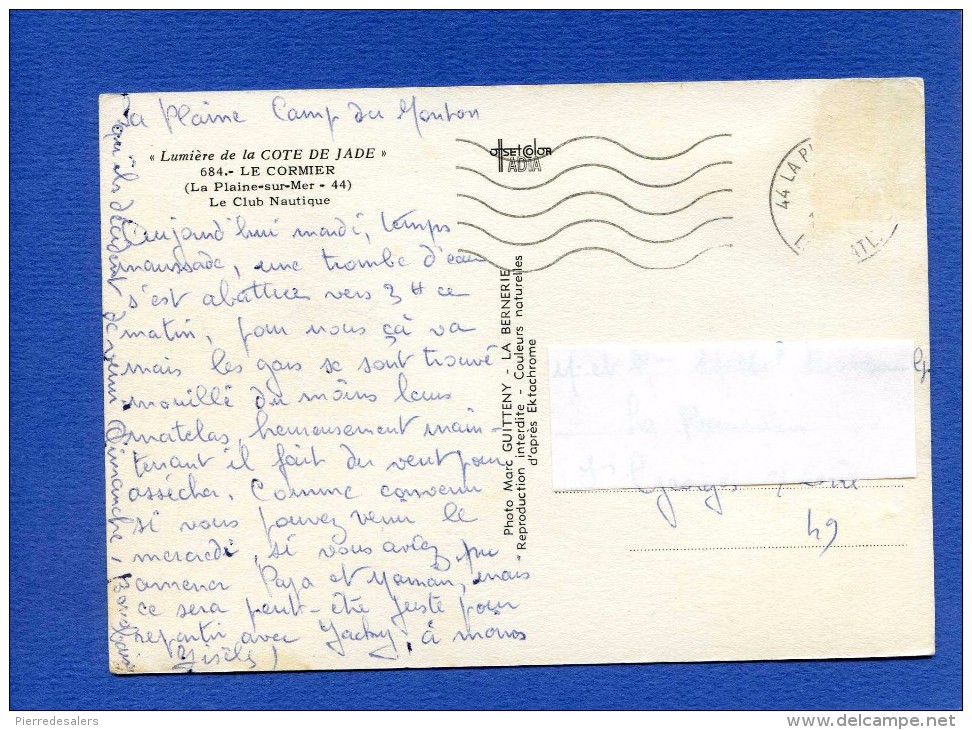 La Plaine Camp du Mouton
« Lumière de la COTE DE JADE »
684.- LE CORMIER
(La Plaine-sur-Mer - 44)
Le Club Nautique
aujourd'hui mardi, temps
maussade, une trombe d'eau
s'est abattue vers 3 H ce
matin, pour nous çà va
mais les gars se sont trouvé
mouillé du moins leurs
matelas, heureusement main-
tenant il fait du vent pour
assécher. Comme convenu
si vous pouvez venir le
mercredi, si vous aviez pu
amener Papa et Maman, mais
ce sera peut-être juste pour
repartir avec Jacky, à moins
qu'ils décident de venir Dimanche,
Gisèle
OFFSET COLOR
ADIA
Photo Marc GUITTENY - LA BERNERIE
Reproduction interdite - Couleurs naturelles
d'après Ektachrome
44 LA P
ATL.
Georges
49
Pierredesalers
delcampe.net